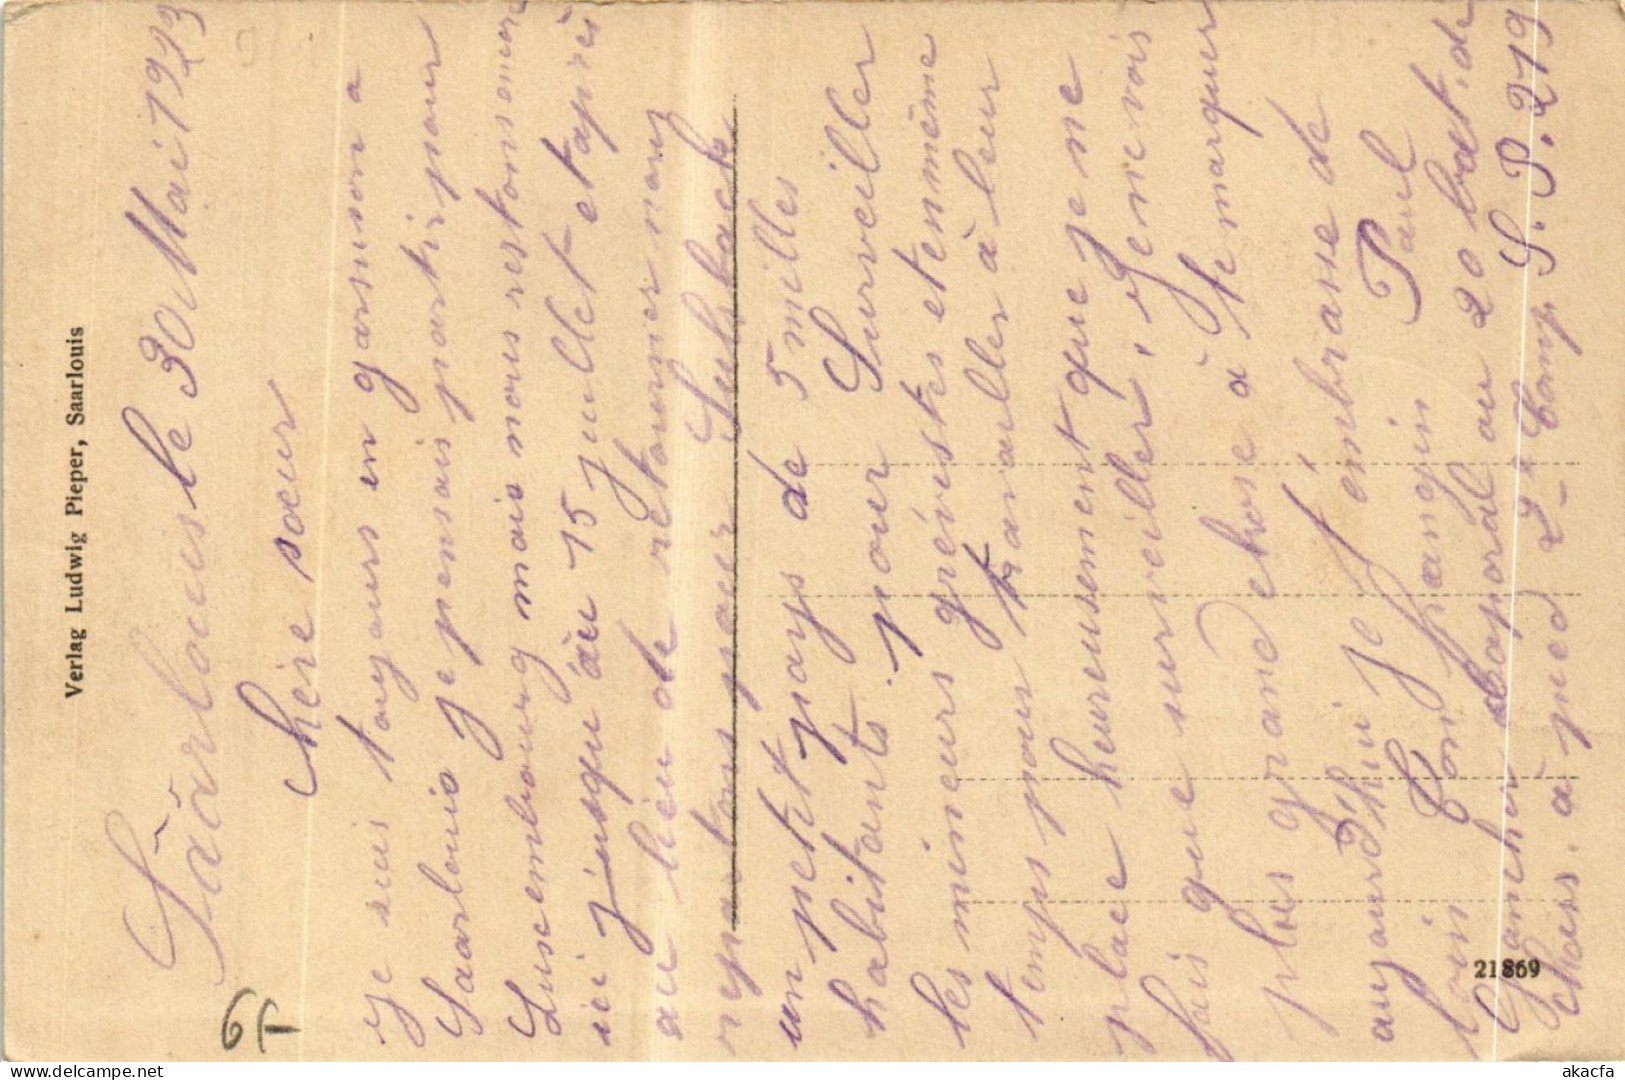 Verlag Ludwig Pieper, Saarlouis
Saarlouis le 30 Mai 1923
Chère sœur
Je suis toujours en garnison a
Saarlouis je pensais partir pour
Luxembourg mais nous restons encore
ici jusqu'au 15 juillet et après
au lieu de retourner nous
repartons pour Sulsbach
un petit pays de 5 milles
habitants pour Surveiller
les mineurs grévistes et en même
temps pour travailler à leur
place heureusement que je ne
fais que surveiller, Je ne vois
plus grand chose à te marquer
aujourd'hui je t'embrasse de
loin Ton frangin Paul
Ganchin Caporal au 20 bat. de
Chass. à pied 2e Comp. S.P. 219
21869
61
akacfa